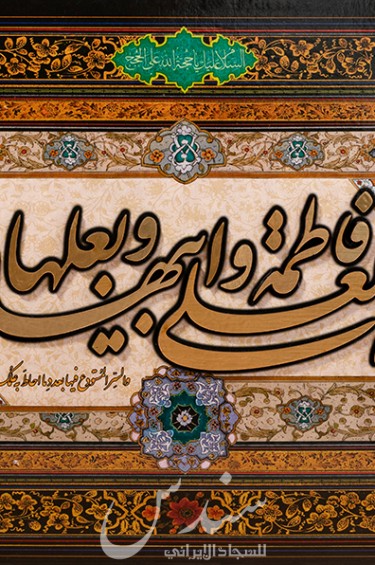 السلام علیک یا حجة الله علی الحجج
علی فاطمة وابیها وبعلها
والسر المستودع فیها بعدد ما احاط به علمک
سندس
للسجاد الإيراني